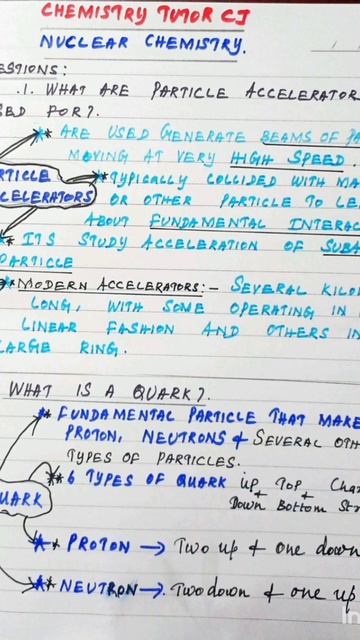 CHEMISTRY TUTOR CJ
NUCLEAR CHEMISTRY.
ESTIONS:
.1. WHAT ARE PARTICLE ACCELERATOR
SED FOR?
** ARE USED GENERATE BEAMS OF PA
MOVING AT VERY HIGH SPEED
RTICLE
CELERATORS
** TYPICALLY COLLIDED WITH MA
OR OTHER PARTICLE TO LE
ABOUT FUNDAMENTAL INTERAC
** ITS STUDY ACCELERATION OF SUBA
PARTICLE
* MODERN ACCELERATORS:- SEVERAL KILO
LONG, WITH SOME OPERATING IN
LINEAR FASHION AND OTHERS IN
LARGE RING.
WHAT IS A QUARK?
** FUNDAMENTAL PARTICLE THAT MAKE
PROTON, NEUTRONS & SEVERAL OTH
TYPES OF PARTICLES.
** 6 TYPES OF QUARK up & Top & Cha
Down Bottom Str
UARK
** PROTON → Two up & one down
** NEUTRON → Two down & one up
in